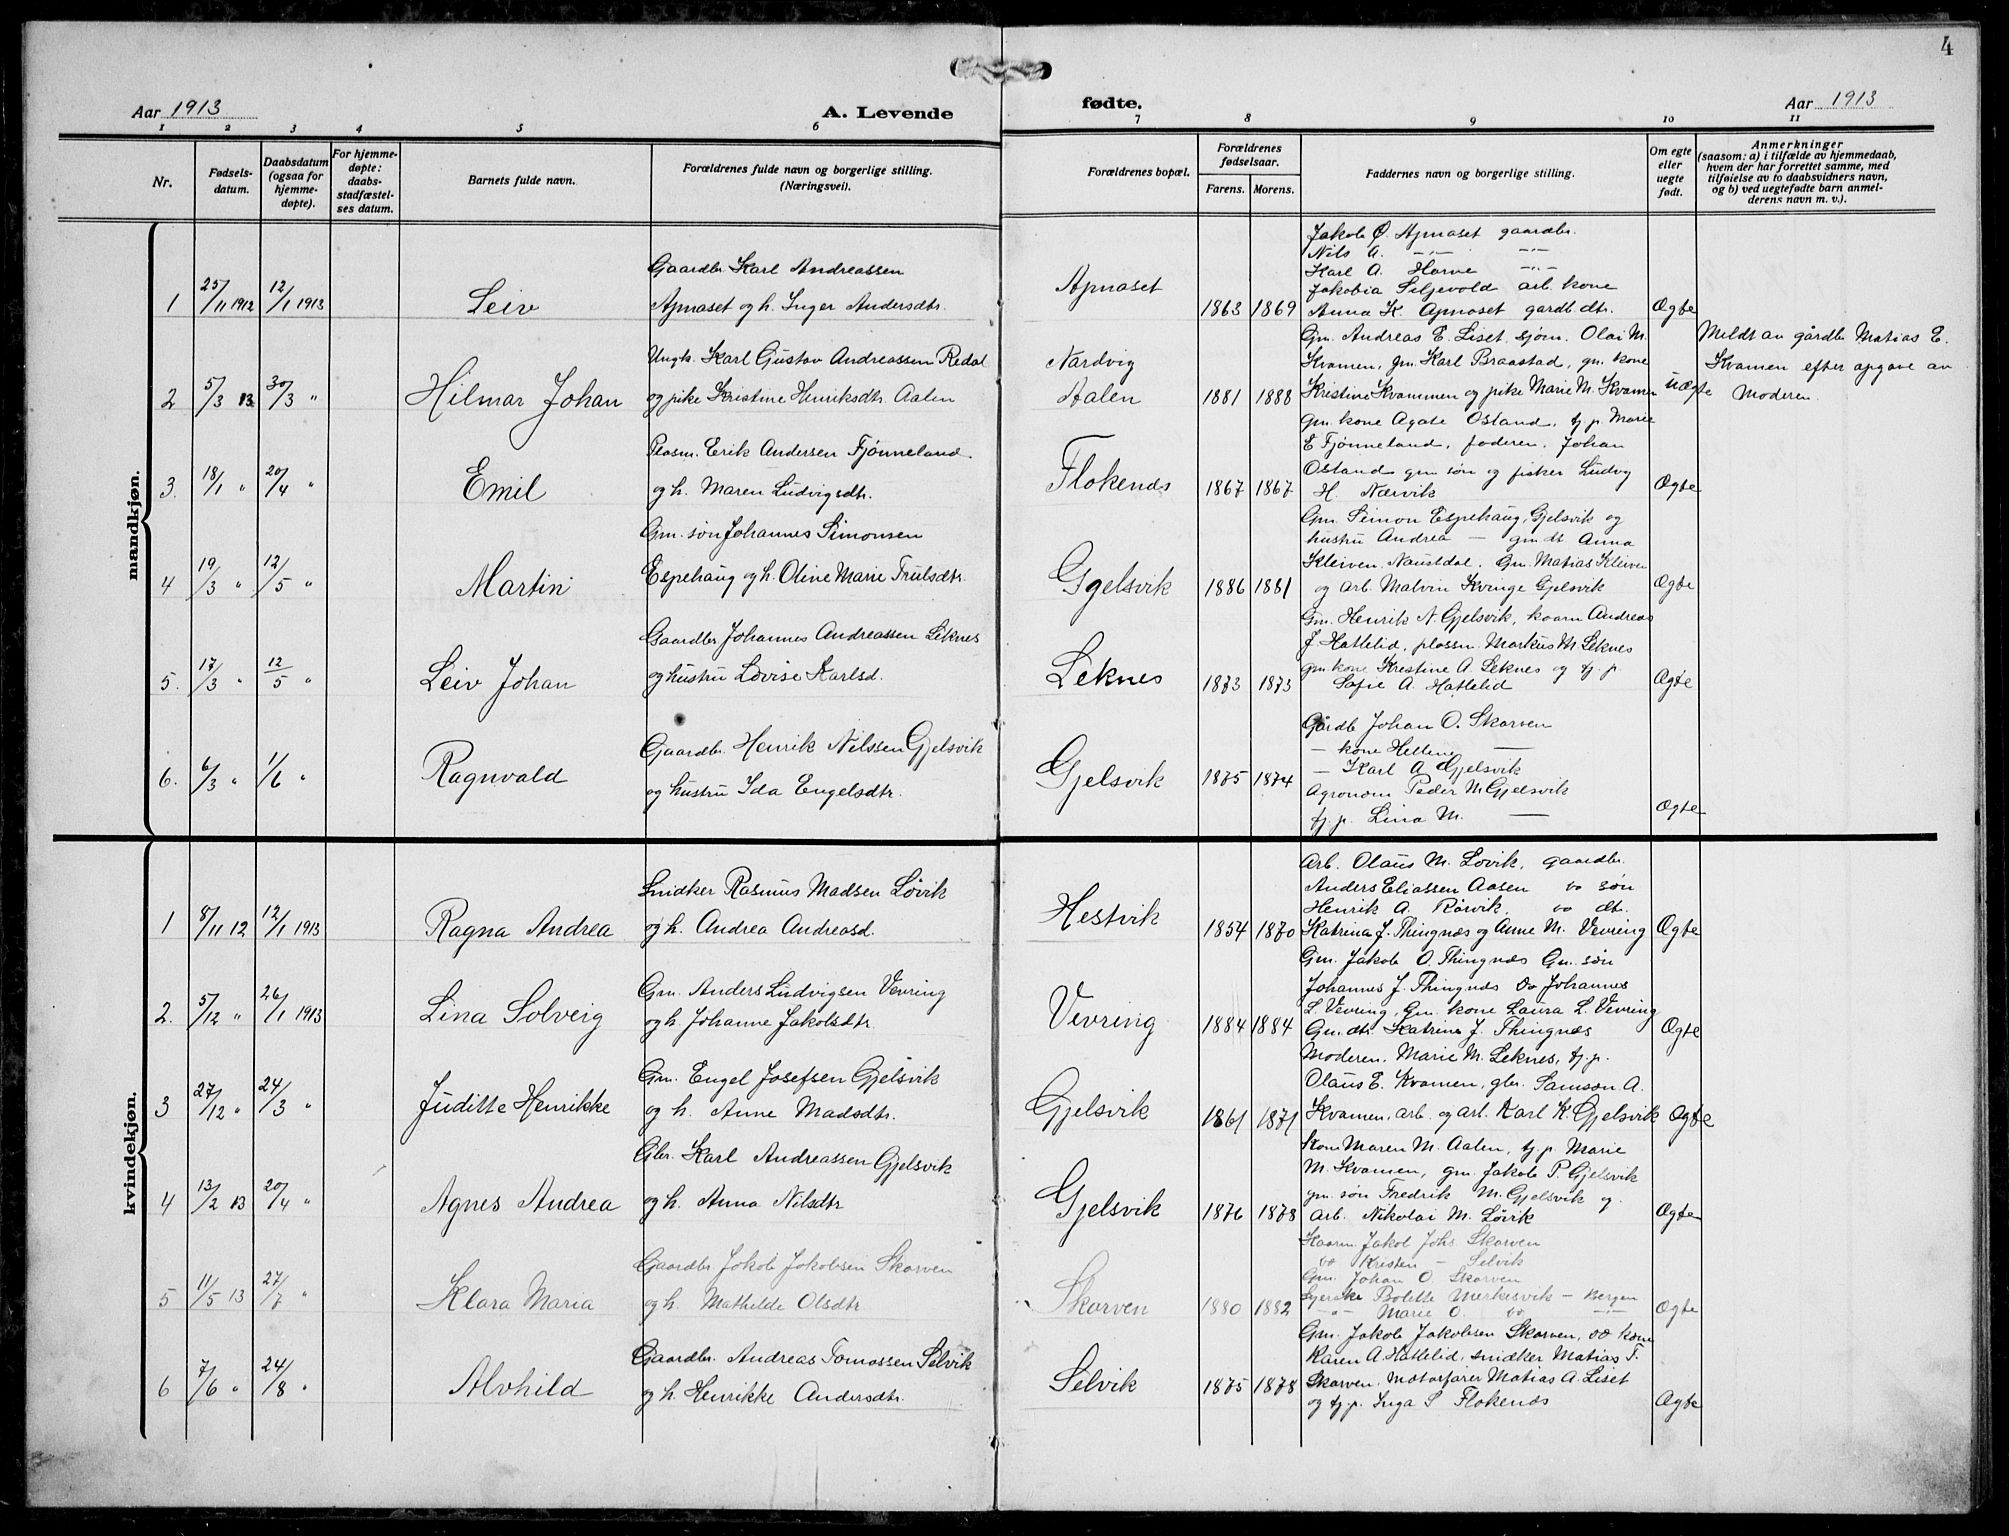 4
Aar 1913
A. Levende
fødte.
Aar 1913
1 2 3 4 5 6 7 8 9 10 11
Nr.
Fødsels-
datum.
Daabsdatum
(ogsaa for
hjemme-
døpte).
For hjemme-
døpte:
daabs-
stadfæstel-
ses datum.
Barnets fulde navn.
Forældrenes fulde navn og borgerlige stilling.
(Næringsvei).
Forældrenes bopæl.
Forældrenes
fødselsaar.
Farens. Morens.
Faddernes navn og borgerlige stilling.
Om egte
eller
uegte
født.
Anmerkninger
(saasom: a) i tilfælde av hjemmedaab,
hvem der har forrettet samme, med
tilføielse av to daabsvidners navn,
og b) ved uegtefødte barn anmel-
derens navn m. v.).
mandkjøn.
1 25/11 1912 12/1 1913 Leiv
Gaardbr. Karl Andreassen
Apnaset og h. Inger Andersdtr.
Apnaset 1863 1869
Jakob Ø. Apnaset gaardbr.
Nils A. -"- -"-
Karl A. Horne -"-
Jakobia Seljevold arb. kone
Anna K. Apnaset gardb dtr.
Ægte
2 5/3 13 30/3 " Hilmar Johan
Ungk. Karl Gustav Andreassen Redal
og pike Kristine Henriksdtr. Aalen
Nardvig
Aalen 1881 1888
Gm. Andreas E. Liset, sjøm. Olai M.
Kvamen, gm. Karl Braastad, gm. kone
Kristine Kvammen og pike Marie M. Kvamen
uægte
Meldt av gårdbr Matias E.
Kvamen efter opgave av
Moderen.
3. 18/1 " 20/4 " Emil
Plasm. Erik Andersen Fjønneland
og h. Maren Ludvigsdtr.
Flokenes 1867 1867
gm. kone Agate Ostand, tj. p. Marie
E Fjønneland, faderen, Johan
Ostand gm søn og fisker Ludvg
H. Nærvik
Ægte
4 19/3 " 12/5 " Martin
Gm. søn Johannes Simonsen
Espehaug og h. Oline Marie Trulsdtr.
Gjelsvik 1886 1881
Gm. Simon Espehaug, Gjelsvik og
hustru Andrea — gm dt Anna
Kleiven. Naustdal. Gm. Matias Kleiven
og arb. Malvin Kvinge Gjelsvik
Ægte
5. 17/3 " 12/5 " Leiv Johan
Gaardbr Johannes Andreassen Leknes
og hustru Lovise Karlsd.
Leknes 1873 1873
Gm. Henrik N. Gjelsvik, kaarm Andreas
J. Hattelid, plassm. Markus M. Leknes
gm. kone Kristine A. Leknes og tj. p.
Sofie A. Hattelid
Ægte
6. 6/3 " 1/6 " Ragnvald
Gaardbr. Henrik Nilssen Gjelsvik
og hustru Ida Engelsdtr.
Gjelsvik 1875 1874
Gårdb Johan O. Skorven
— kone Hellene —
— Karl A Gjelsvik
Agronom Peder M. Gjelsvik
tj. p. Lina M. —
Ægte
kvindekjøn.
1 8/11 12 12/1 1913 Ragna Andrea
Snidker Rasmus Madsen Løvik
og h. Andrea Andreasd.
Hestvik 1854 1870
Arb. Olaus M. Løvik, gaardbr.
Anders Eliassen Aasen do søn
Henrik A. Rørvik. do dt.
Katrina J. Thingnæs og Anne M. Vevring
Ægte
2. 5/12 " 26/1 1913 Lina Solveig
Gm. Anders Ludvigsen Vevring
og h Johanne Jakobsdtr.
Vevring 1884 1884
Gm. Jakob O. Thingnæs Gm. søn
Johannes J. Thingnæs Do Johannes
L. Vevring, Gm. kone Laura L. Vevring
Gm. dtr. Katrina J. Thingnæs
Ægte
3 27/12 " 24/3 " Juditte Henrikke
Gm. Engel Josefsen Gjelsvik
og h. Anne Madsdtr.
Gjelsvik 1861 1871
Moderen, Marie M. Leknes, tj. p.
Olaus E. Kvamen, gbr. Samson A.
Kvamen, arb. og arb. Karl K. Gjelsvik
Ægte
4 13/2 13 20/4 " Agnes Andrea
Gbr. Karl Andreassen Gjelsvik
og h. Anna Nilsdtr
Gjelsvik 1876 1878
kone Maren M. Aalen, tj. p. Marie
M. Kvamen, gm. Jakob P. Gjelsvik
gm. søn Fredrik M. Gjelsvik og
arb. Nikolai M. Løvik
Ægte
5 11/5 13 27/7 " Klara Maria
Gaardbr Jakob Jakobsen Skorven
og h. Mathilde Olsdtr
Skorven 1880 1882
Kaarm. Jakob Johs. Skorven
do Kristen — Selvik
Gm. Johan O. Skorven
Syerske Bolette Merkesvik — Bergen
-"- Marie O. do -"-
Ægte
6 7/6 " 24/8 " Alvhild
Gaardbr. Andreas Tomassen Selvik
og h. Henrikke Andersdtr.
Selvik 1875 1878
Gm. Jakob Jakobsen Skorven, do kone
Karen A. Hattelid, snidker Matias T.
Skorven, motorfører Matias A. Liset
og tj. p. Inga S Flokenæs
Ægte